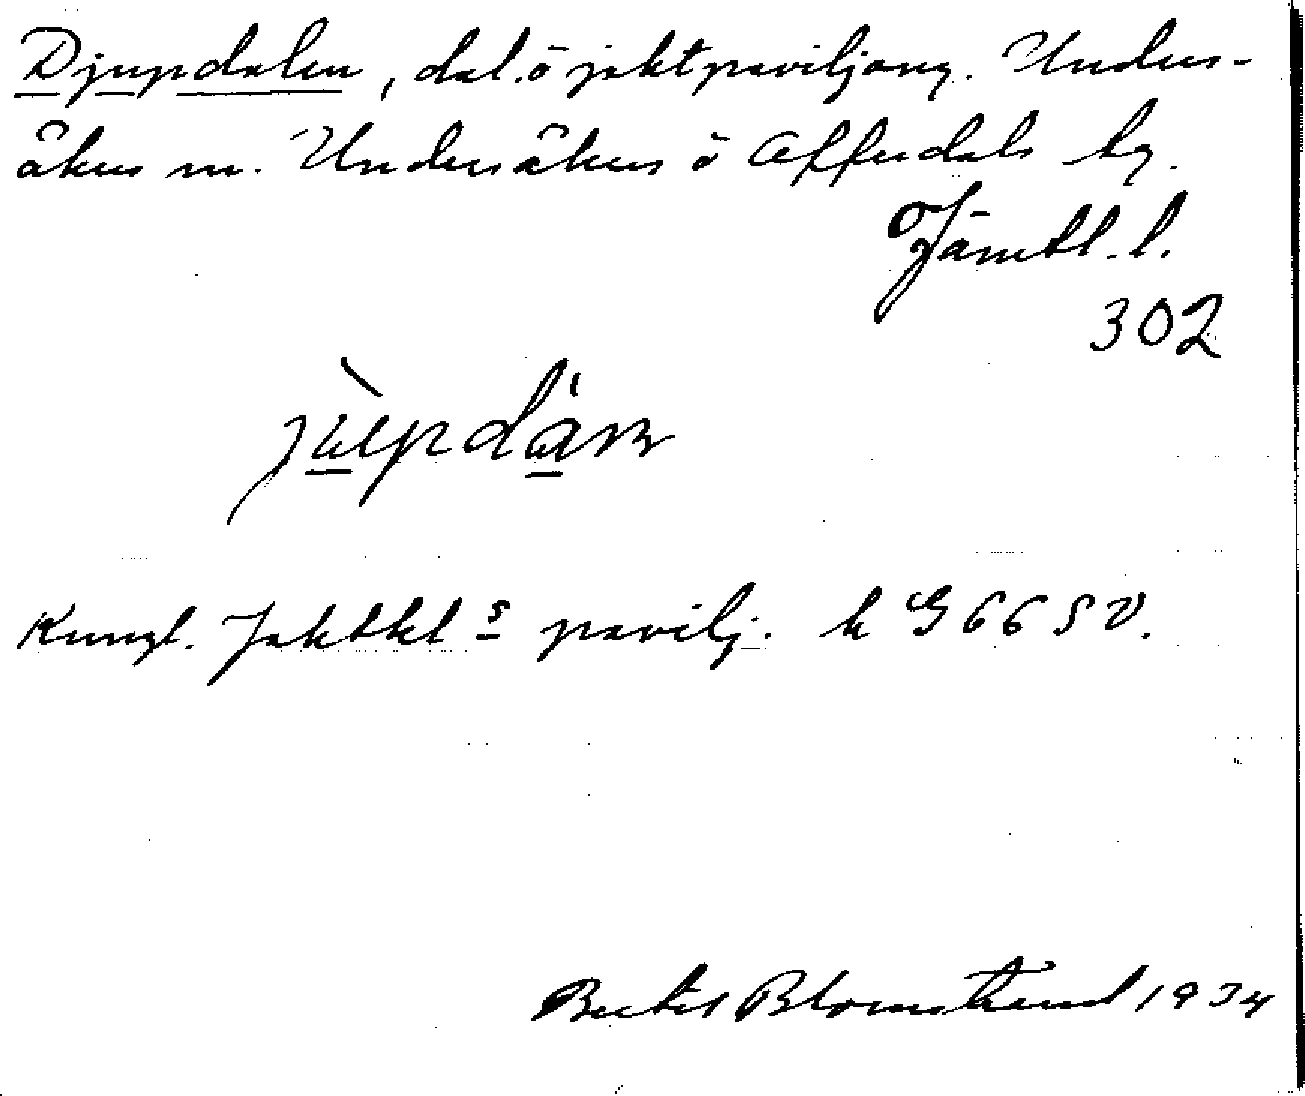 Djupdalen, dal. o jaktpaviljong. Unders-
åkers sn. Undersåkers o Offerdals tg.
Jämtl. l.
302
Kungl. Jaktkl:s pavilj. k G 66 SV.
Bertel Blomstrand 1934